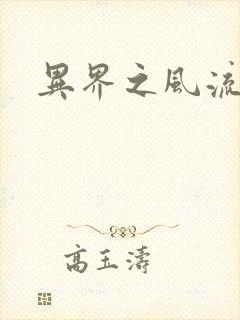 異界之風流
高玉濤